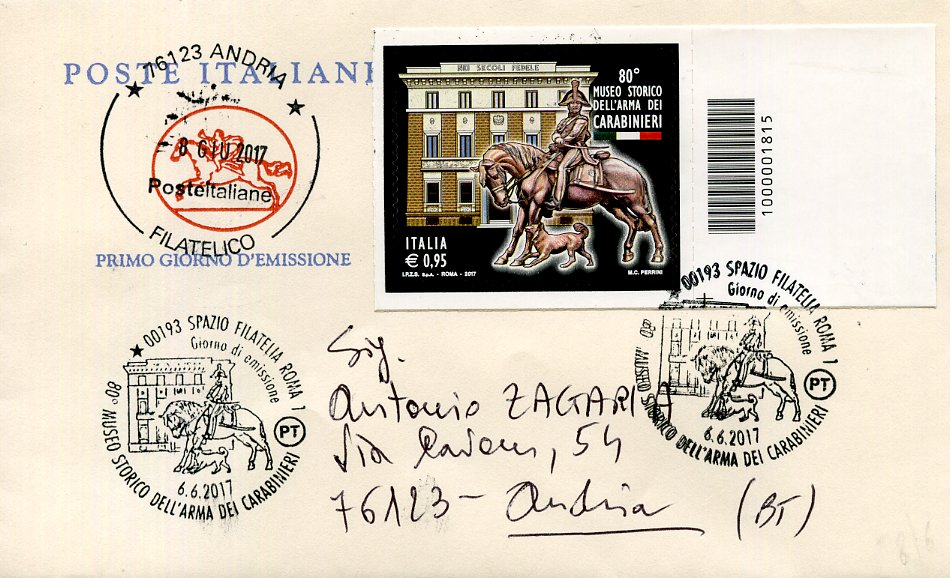 POSTE ITALIANE
76123 ANDRIA
8 GIU 2017
PosteItaliane
FILATELICO
PRIMO GIORNO D'EMISSIONE
NEI SECOLI FEDELE
80°
MUSEO STORICO
DELL'ARMA DEI
CARABINIERI
ITALIA
€ 0,95
I.P.Z.S. S.p.A. - ROMA - 2017
M.C. PERRINI
1000001815
00193 SPAZIO FILATELIA ROMA 1
Giorno di emissione
PT
6.6.2017
80° MUSEO STORICO DELL'ARMA DEI CARABINIERI
00193 SPAZIO FILATELIA ROMA 1
Giorno di emissione
PT
6.6.2017
80° MUSEO STORICO DELL'ARMA DEI CARABINIERI
Sig.
Antonio ZAGARIA
Via 54
76123 - Andria (BT)
8/6